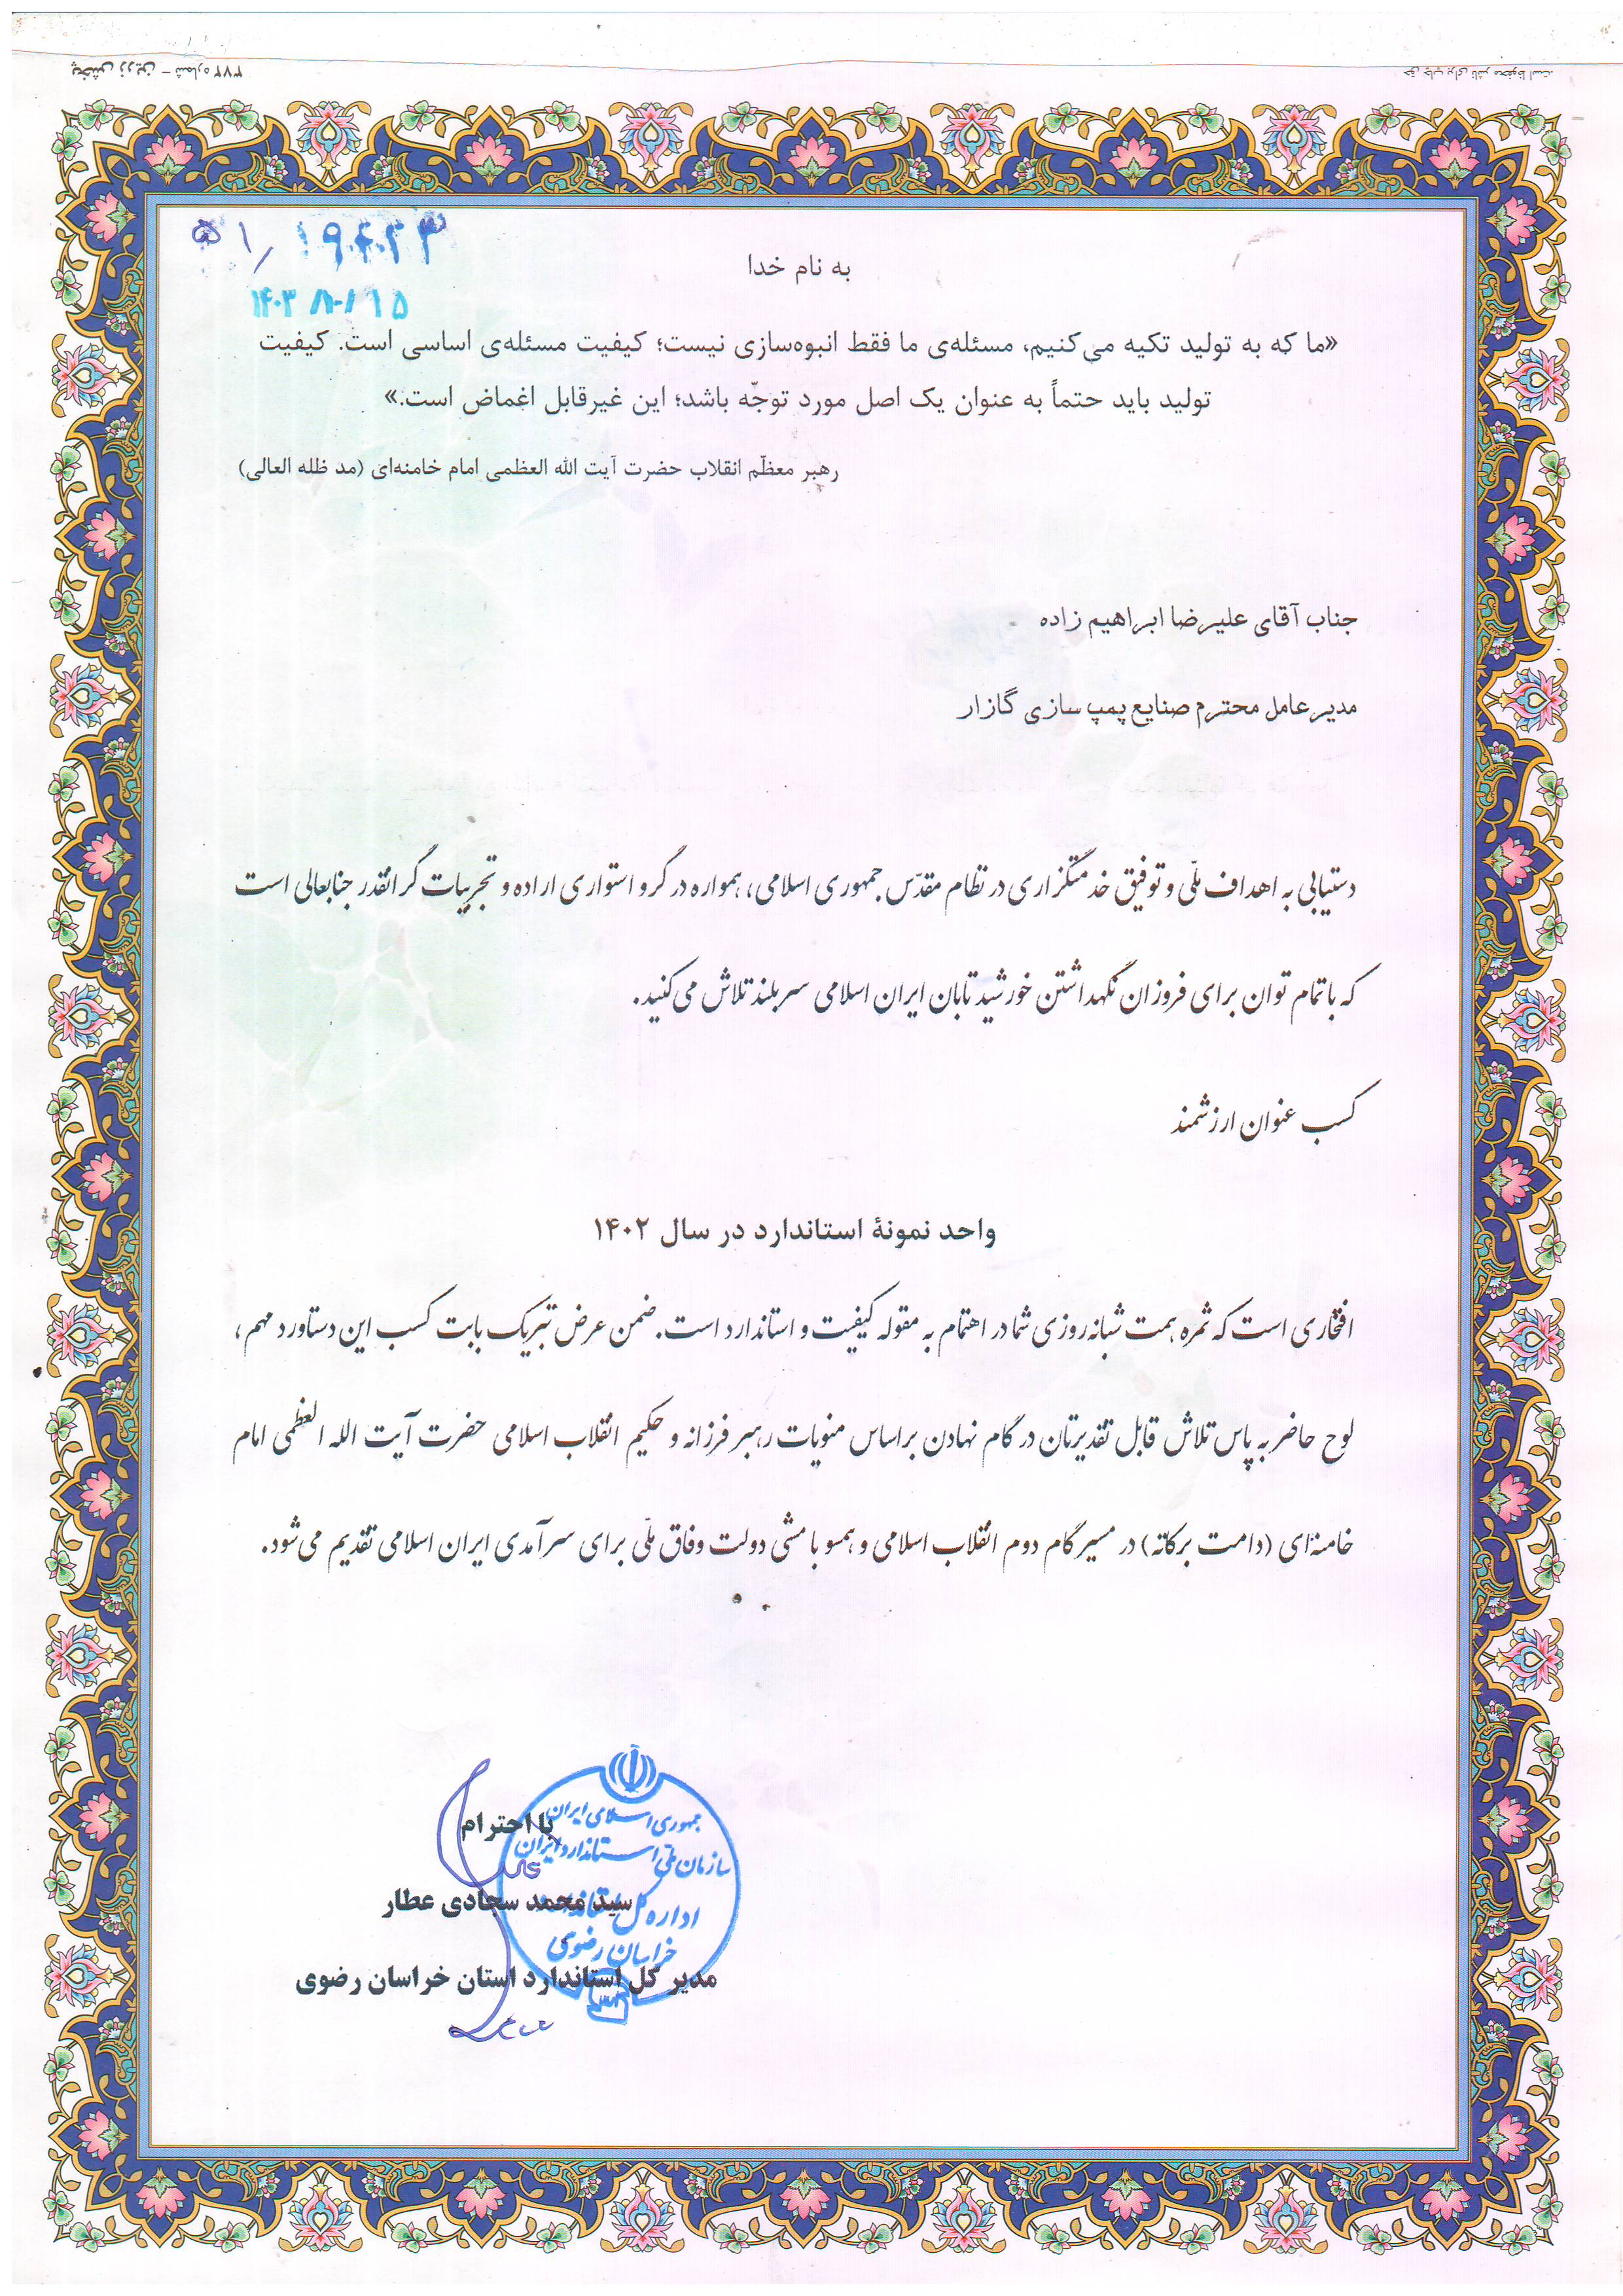 به نام خدا
۱۴۰۳/۱۰/۱۵
«ما که به تولید تکیه می‌کنیم، مسئله‌ی ما فقط انبوه‌سازی نیست؛ کیفیت مسئله‌ی اساسی است. کیفیت
تولید باید حتماً به عنوان یک اصل مورد توجّه باشد؛ این غیرقابل اغماض است.»
رهبر معظّم انقلاب حضرت آیت الله العظمی امام خامنه‌ای (مد ظله العالی)
جناب آقای علیرضا ابراهیم زاده
مدیرعامل محترم صنایع پمپ سازی گازار
دستیابی به اهداف ملّی و توفیق خدمتگزاری در نظام مقدّس جمهوری اسلامی، همواره در گرو استواری اراده و تجربیات گرانقدر جنابعالی است
که با تمام توان برای فروزان نگهداشتن خورشید تابان ایران اسلامی سربلند تلاش می‌کنید.
کسب عنوان ارزشمند
واحد نمونهٔ استاندارد در سال ۱۴۰۲
افتخاری است که ثمره همت شبانه‌روزی شما در اهتمام به مقوله کیفیت و استاندارد است. ضمن عرض تبریک بابت کسب این دستاورد مهم،
لوح حاضر به پاس تلاش قابل تقدیرتان در گام نهادن براساس منویات رهبر فرزانه و حکیم انقلاب اسلامی حضرت آیت الله العظمی امام
خامنه‌ای (دامت برکاته) در مسیر گام دوم انقلاب اسلامی و همسو با مشی دولت وفاق ملّی برای سرآمدی ایران اسلامی تقدیم می‌شود.
با احترام
سید محمد سجادی عطار
مدیر کل استاندارد استان خراسان رضوی
جمهوری اسلامی ایران
سازمان ملی استاندارد ایران
اداره کل استاندارد
خراسان رضوی